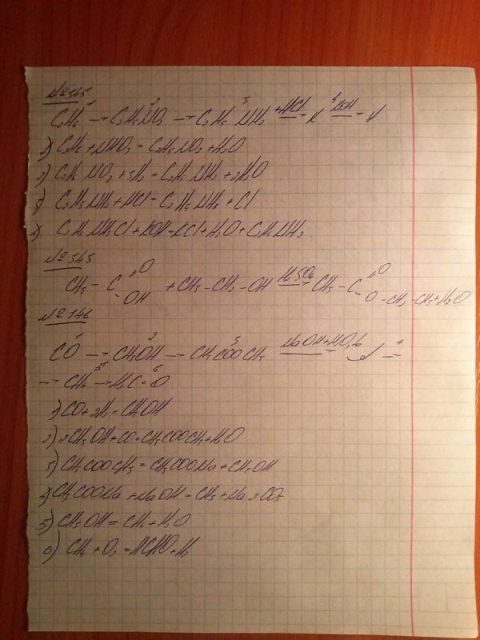 №545
C₂H₆ → C₂H₅NO₂ → C₂H₅NH₂ +HCl X KOH Y
C₂H₆ + HNO₃ = C₂H₅NO₂ + H₂O
2) C₂H₅NO₂ + 3H₂ = C₂H₅NH₂ + 2H₂O
C₂H₅NH₂ + HCl = C₂H₅NH₃ + Cl
C₂H₅NH₃Cl + KOH = KCl + H₂O + C₂H₅NH₂
№545
CH₃ - C =O - OH + CH₃ - CH₂ - OH H₂SO₄ CH₃ - C =O - O - CH₂ - CH₃ + H₂O
№746
CO → CH₃OH → CH₃COOCH₃ NaOH + H₂O, t →
→ CH₄ → H₂C=O
1) CO + 2H₂ = CH₃OH
2) 2CH₃OH + CO = CH₃COOCH₃ + H₂O
3) CH₃COOCH₃ = CH₃COONa + CH₃OH
4) CH₃COONa + NaOH = CH₄ + Na₂CO₃
5) CH₃OH = CH₄ + H₂O
6) CH₄ + O₂ = HCHO + H₂